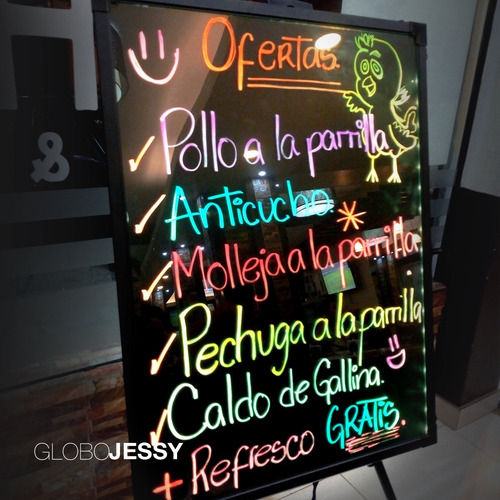 Ofertas.
&
✓ Pollo a la parrilla
✓ Anticucho.
✓ Molleja a la parrilla.
✓ Pechuga a la parrilla
✓ Caldo de Gallina.
+ Refresco GRATIS.
GLOBOJESSY